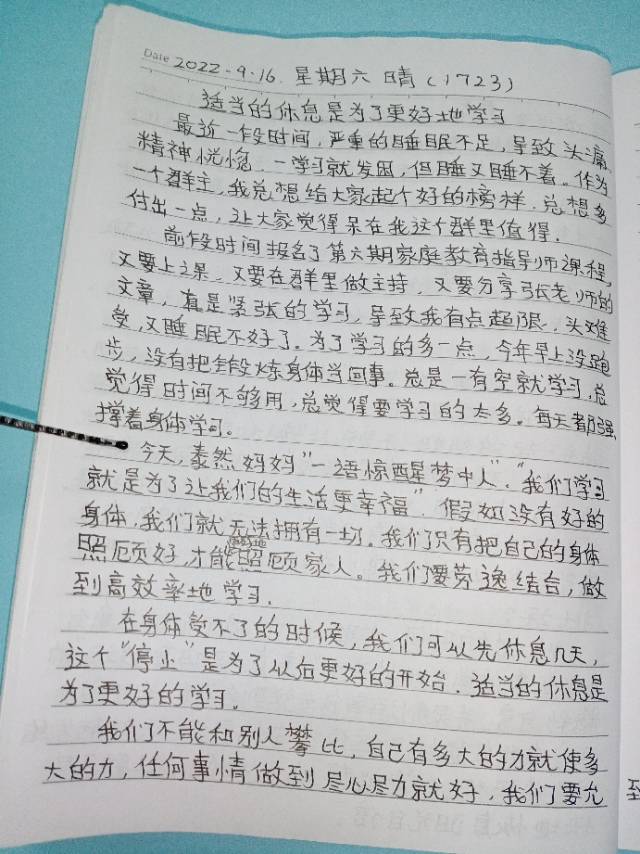 Date 2022-9·16. 星期六 晴(1723)
适当的休息是为了更好地学习
最近一段时间,严重的睡眠不足,导致头痛,
精神恍惚,一学习就发困,但睡又睡不着。作为
一个群主,我总想给大家起个好的榜样,总想多
付出一点,让大家觉得呆在我这个群里值得.
前段时间报名了第六期家庭教育指导师课程,
又要上课,又要在群里做主持,又要分享张老师的
文章,真是紧张的学习,导致我有点超限,头难
受,又睡眠不好了。为了学习的多一点,今年早上没跑
步,没有把锻炼身体当回事。总是一有空就学习,总
觉得时间不够用,总觉得要学习的太多。每天都强
撑着身体学习。
今天,泰然妈妈"一语惊醒梦中人"."我们学习
就是为了让我们的生活更幸福".假如没有好的
身体,我们就无法拥有一切。我们只有把自己的身体
照顾好,才能照顾家人。我们要劳逸结合,做
到高效率地学习.
在身体受不了的时候,我们可以先休息几天,
这个"停止"是为了以后更好的开始.适当的休息是
为了更好的学习。
我们不能和别人攀比,自己有多大的力就使多
大的力,任何事情做到尽心尽力就好,我们要允
到